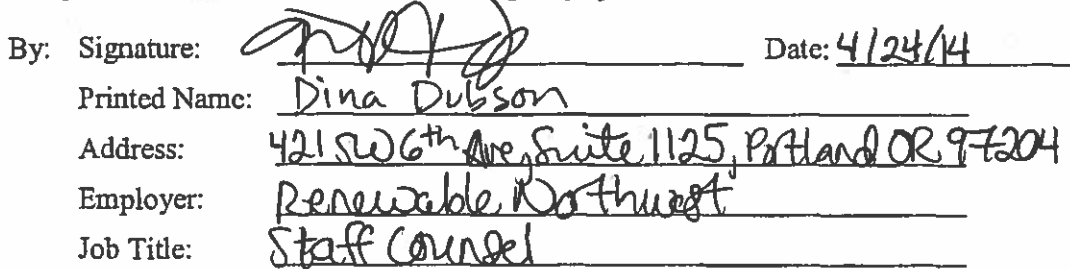 By: Signature: Date: 4/24/14
Printed Name: Dina Dubson
Address: 421 SW 6th Ave, Suite 1125, Portland OR 97204
Employer: Renewable Northwest
Job Title: Staff Counsel